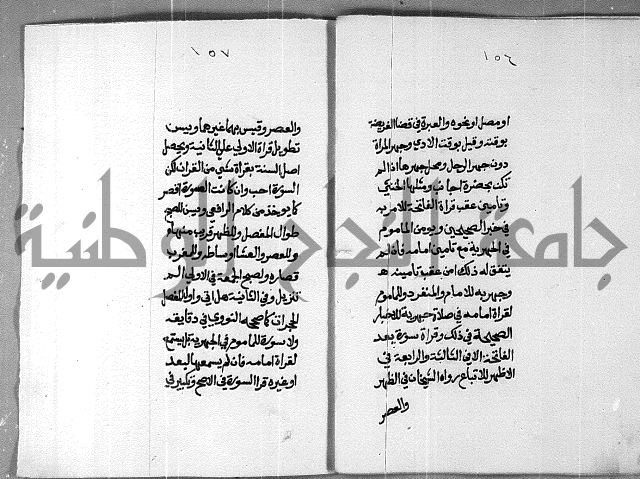 ١٥٦
او مصل او نحوه والعبرة في قضا الفريضة
بوقته وقيل بوقت الادى وجهر المراة
دون جهر الرجل ومحل جهرها اذا لم
تكن بحضرة اجانب ومثلها الخنثى
وتامين عقب قراة الفاتحة للامر به
في خبر الصحيحين ويومن الماموم
في الجهرية مع تامين امامه فان لم
يتفق له ذلك امن عقب تامينه
وجهر به للامام والمنفرد والماموم
لقراة امامه في صلاة جهرية للاخبار
الصحيحة في ذلك وقراة سورة بعد
الفاتحة الا في الثالثة والرابعة في
الاظهر للاتباع رواه الشيخان في الظهر
والعصر
١٥٧
والعصر وقيس بهما غيرهما ويسن
تطويل قراة الاولى على الثانية ويحصل
اصل السنة بقراة شي من القران لكن
السورة احب وان كانت السورة اقصر
كما يوخذ من كلام الرافعي ويسن للصبح
طوال المفصل وللظهر قريب منها
وللعصر والعشا اوساطه وللمغرب
قصاره ولصبح الجمعة في الاولى الم
تنزيل وفي الثانية هل اتى واول المفصل
الحجرات كما صححه النووي في دقايقه
ولا سورة للماموم في الجهرية بل يستمع
لقراة امامه فان لم يسمعها لبعد
او غيره قرا السورة في الاصح وتكبير في
جامعة النجاح الوطنية